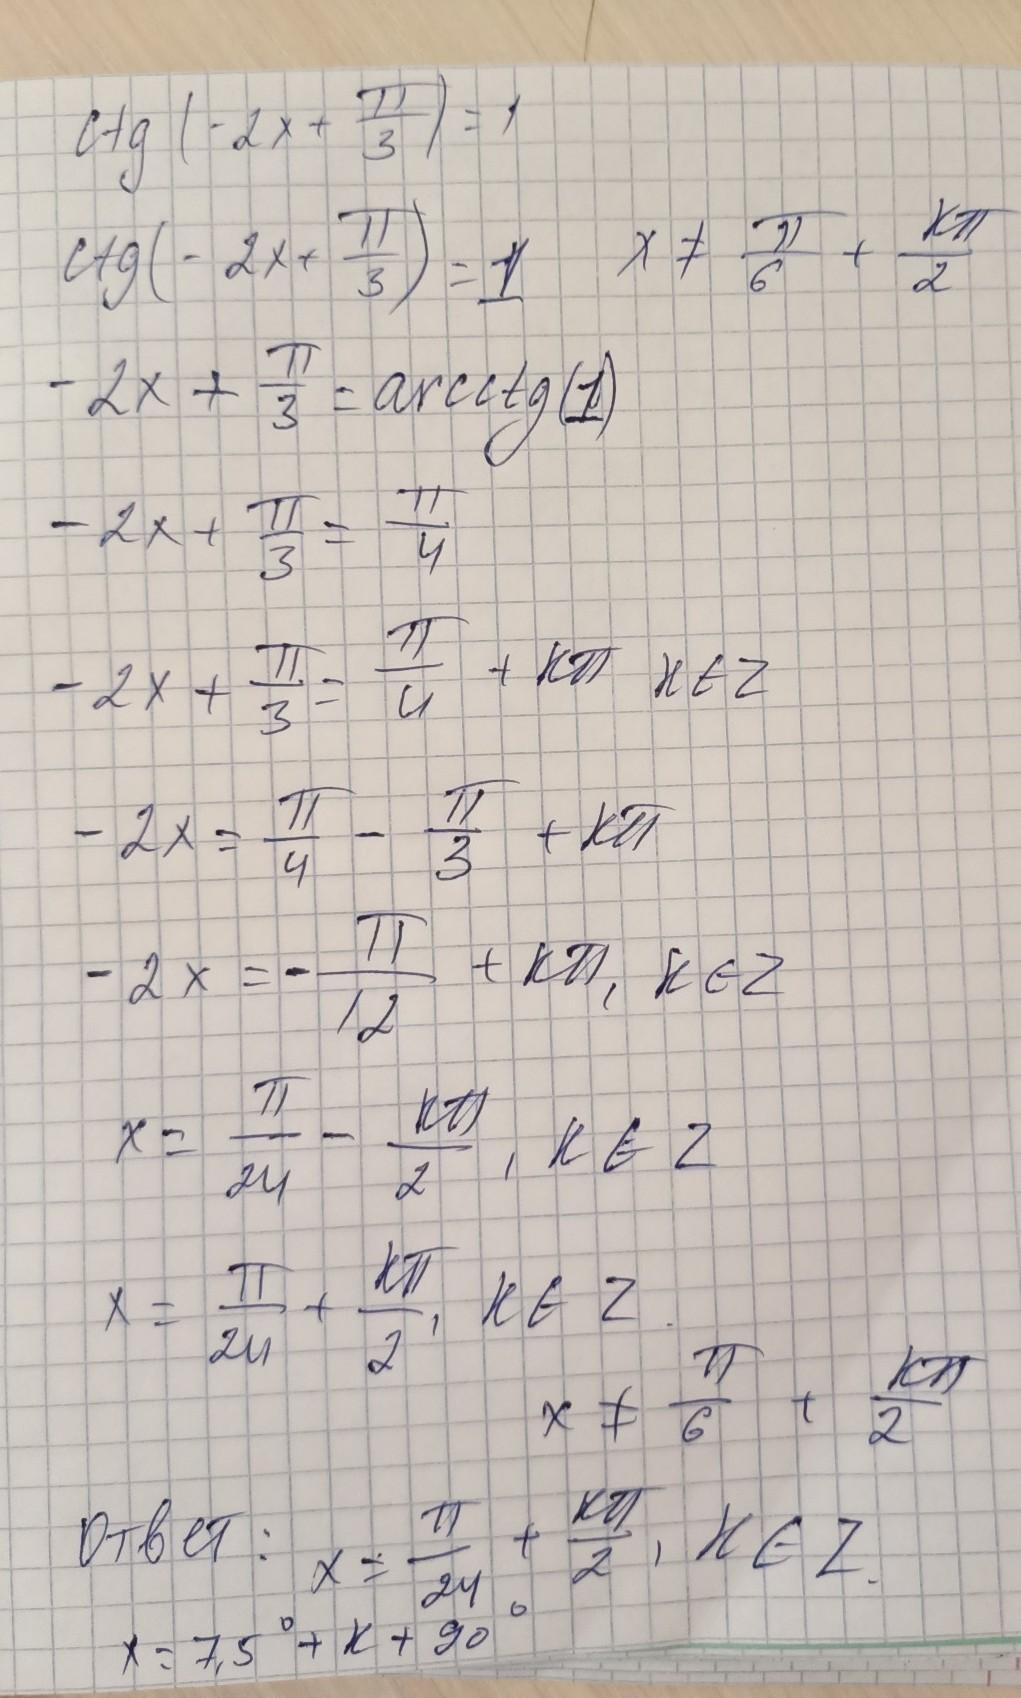 ctg(-2x + π/3) = 1
ctg(-2x + π/3) = 1 x ≠ π/6 + kπ/2
-2x + π/3 = arcctg(1)
-2x + π/3 = π/4
-2x + π/3 = π/4 + kπ k ∈ Z
-2x = π/4 - π/3 + kπ
-2x = -π/12 + kπ, k ∈ Z
x = π/24 - kπ/2, k ∈ Z
x = π/24 + kπ/2, k ∈ Z.
x ≠ π/6 + kπ/2
Ответ: x = π/24 + kπ/2, k ∈ Z.
x = 7,5° + k + 90°